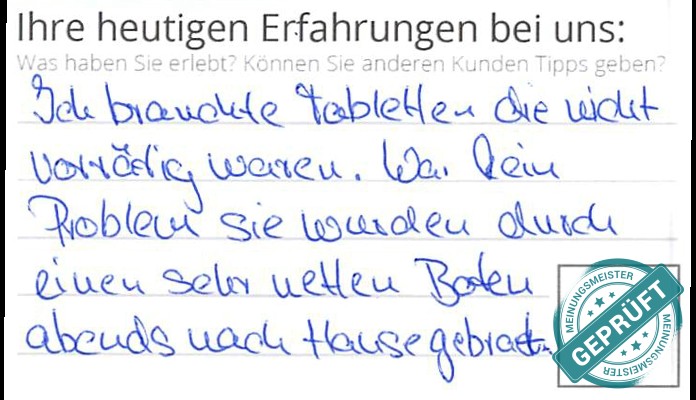 Ihre heutigen Erfahrungen bei uns:
Was haben Sie erlebt? Können Sie anderen Kunden Tipps geben?
Ich brauchte Tabletten die nicht
vorrätig waren. War kein
Problem sie wurden durch
einen sehr netten Boten
abends nach Hause gebracht.
MEINUNGSMEISTER
GEPRÜFT
MEINUNGSMEISTER